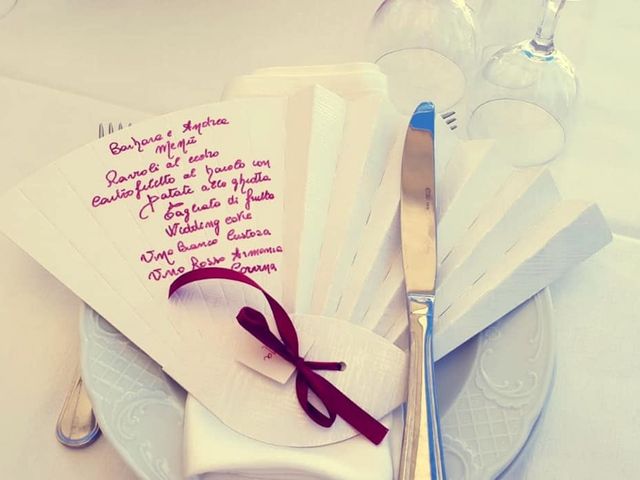 Barbara e Andrea
Menù
Ravioli al cedro
Controfiletto al barolo con
Patate alla ghiotta
Tagliata di frutta
Wedding cake
Vino Bianco Custoza
Vino Rosso Armonia
Corvina